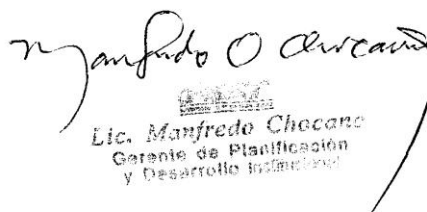 Manfredo O Chocano
Lic. Manfredo Chocano
Gerente de Planificación
y Desarrollo Institucional